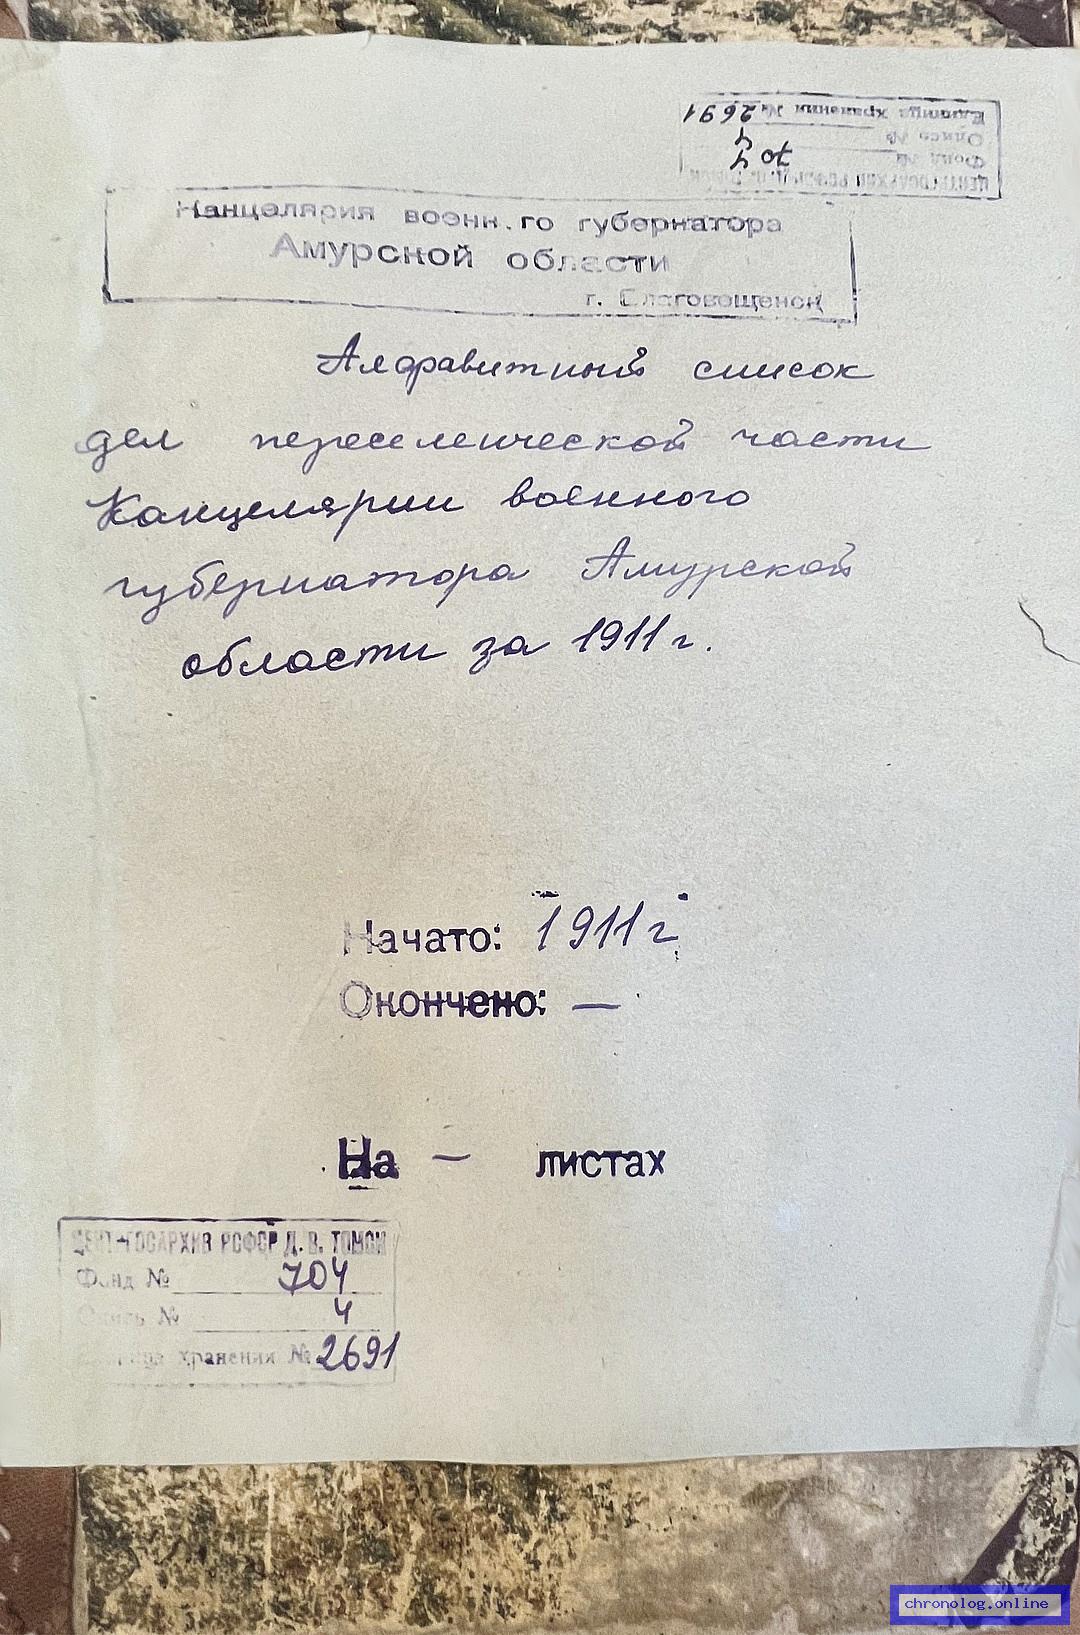 Единица хранения № 2691
Опись № 4
Фонд № 704
Канцелярия военн.го губернатора
Амурской области
г. Благовещенск
Алфавитный список
дел переселенческой части
Канцелярии военного
губернатора Амурской
области за 1911 г.
Начато: 1911 г.
Окончено: —
На — листах
ЦЕНТР ГОСАРХИВ РСФСР Д. В. ТОМСК
Фонд № 704
Опись № 4
Единица хранения № 2691
chronolog.online